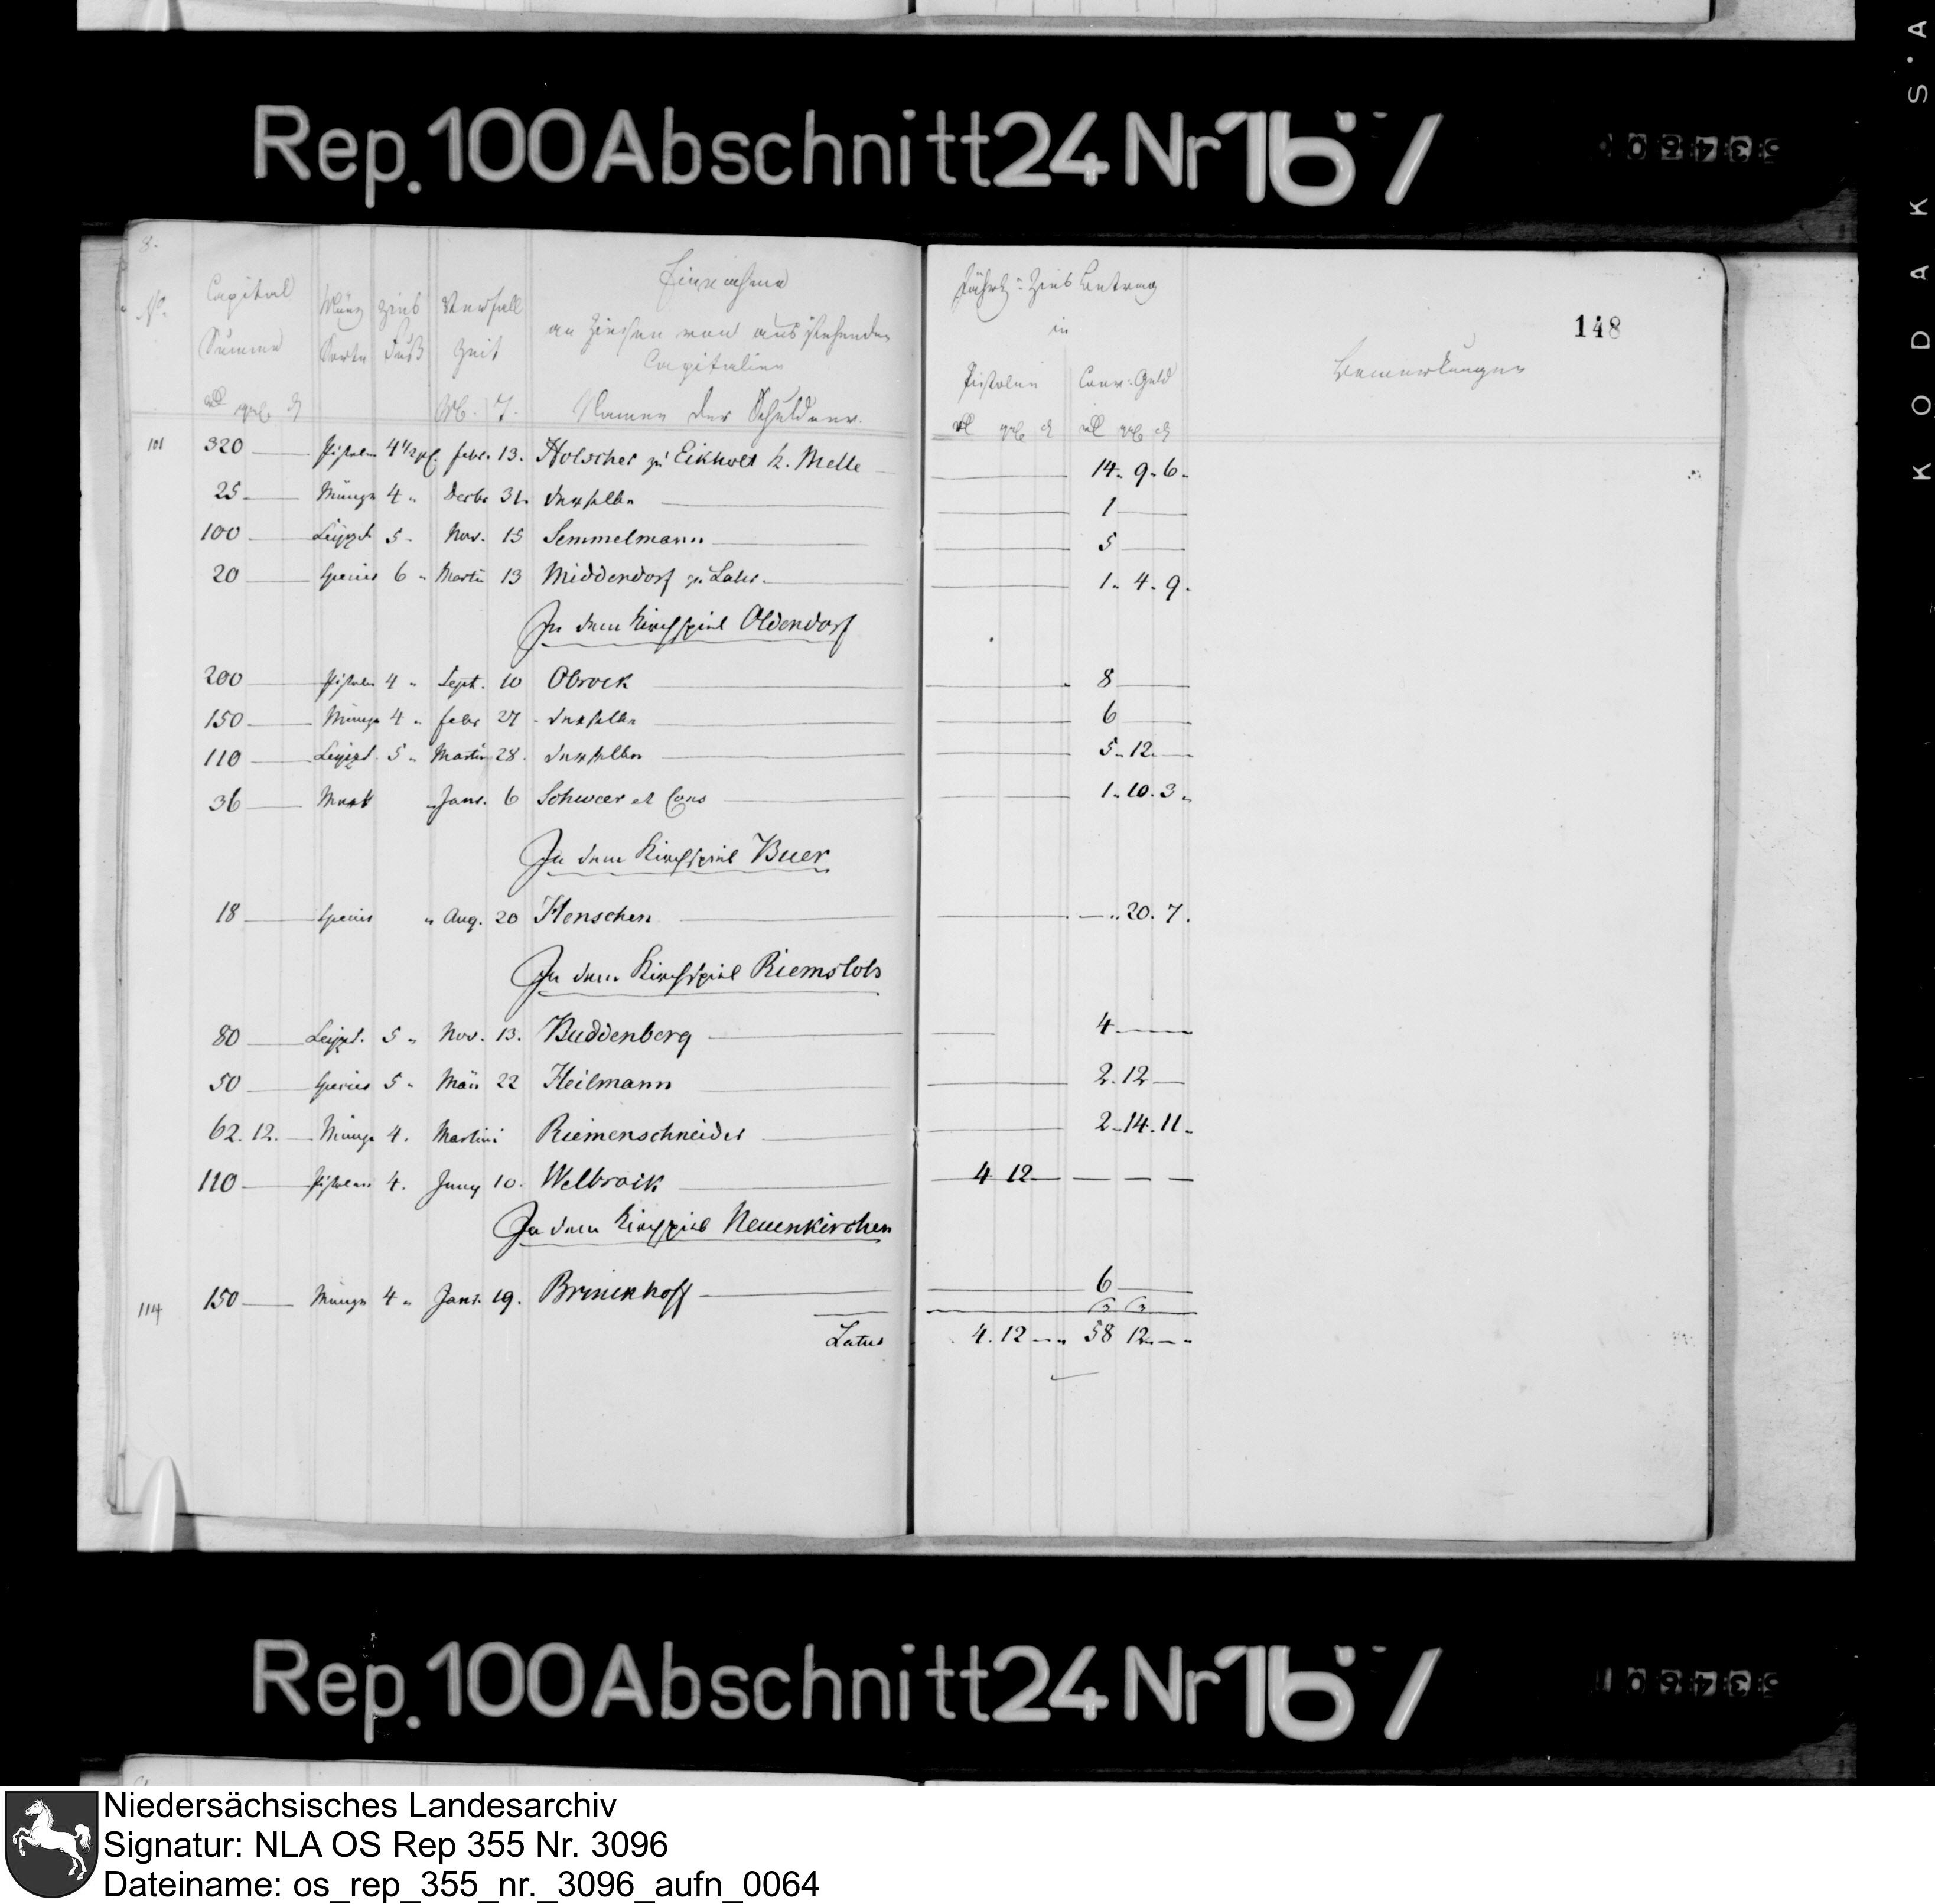 KODAK S.A
Rep.100Abschnitt24Nr
148
8.
No.
Capital
Summe
Münz
Sorte
Zins
Fuß
Verfall
Zeit
Einnahme
an Zinsen von ausstehenden
Capitalien
Namen der Schuldner.
Jährl: Zins Betrag
in
Pistolen Conv: Geld
Bemerkungen
101 320 Pistolen 4 1/2 pC. febr. 13. Holscher zu Eikholt k. Melle 14. 9. 6.
25 Münze 4 " Decbr 31. derselbe 1
100 Leipzt. 5 Nov. 15 Semmelmann 5
20 Species 6 " Martii 13 Middendorf zu Laer 1. 4. 9.
In dem Kirchspiel Oldendorf
200 Pistolen 4 " Sept. 10 Obrock 8
150 Münze 4 " febr 27 derselbe 6
110 Leipzt. 5 " Martii 28. derselbe 5. 12.
36 " Janr. 6 Schweer et Cons 1. 10. 3.
In dem Kirchspiel Buer
18 Species " Aug. 20 Henschen 20. 7.
In dem Kirchspiel Riemsloh
80 Leipzt. 5 " Nov. 13. Buddenberg 4
50 Species 5 " 22 Heilmann 2. 12
62. 12. Münze 4. Martini Riemenschneider 2. 14. 11.
110 Pistolen 4. Juny 10. Welbrock 4 12
In dem Kirchspiel Neuenkirchen
114 150 Münze 4 " Janr. 19. Brinckhoff 6
Latus 4. 12 58 12
Rep.100Abschnitt24Nr
Niedersächsisches Landesarchiv
Signatur: NLA OS Rep 355 Nr. 3096
Dateiname: os_rep_355_nr._3096_aufn_0064